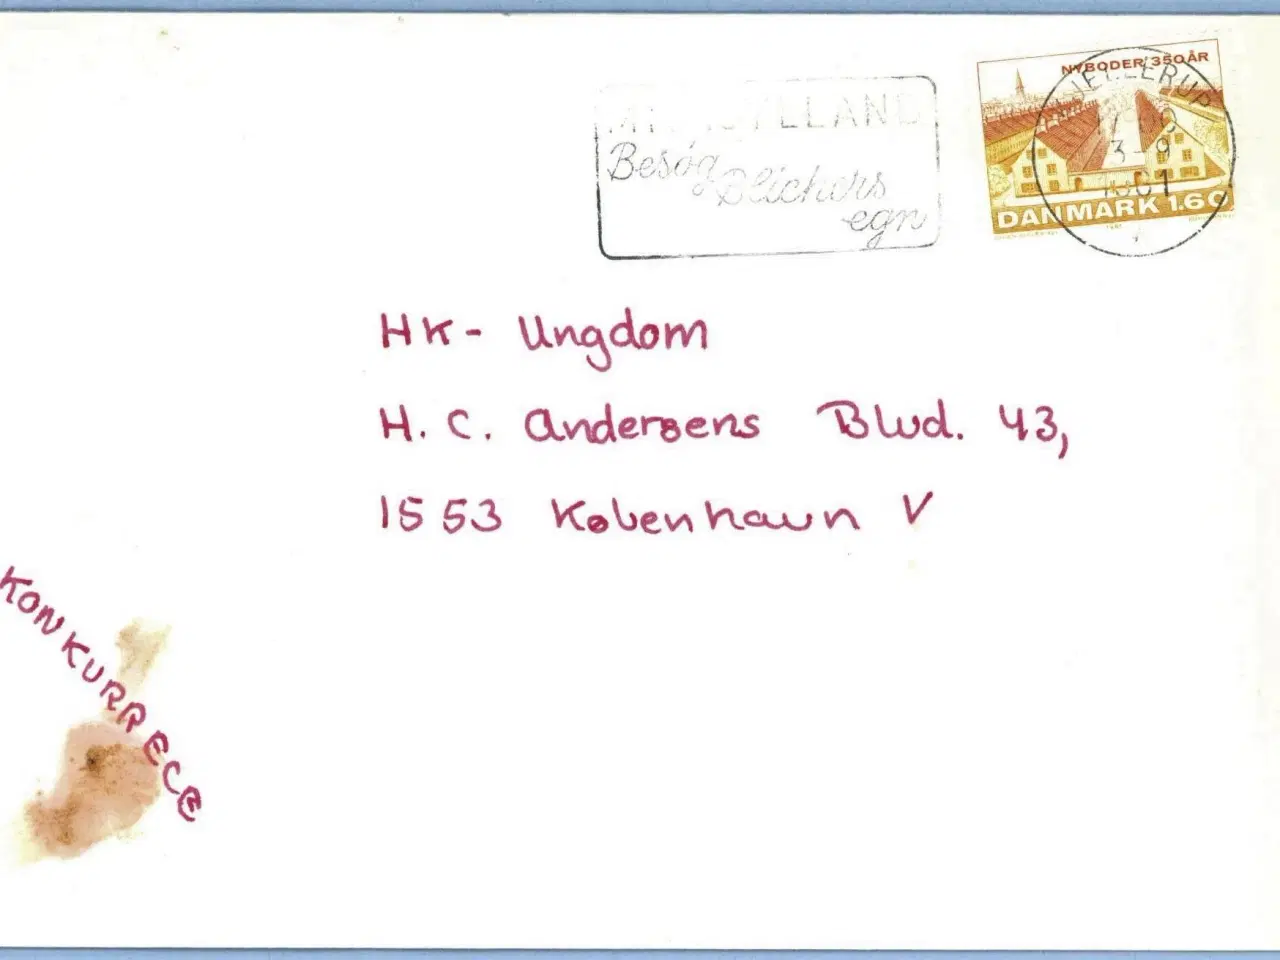 NYBODER 350 ÅR
DANMARK 1.60
3-9
MIDTJYLLAND
Besøg Blichers
egn
HK- Ungdom
H. C. Andersens Blvd. 43,
1553 København V
KONKURRECE